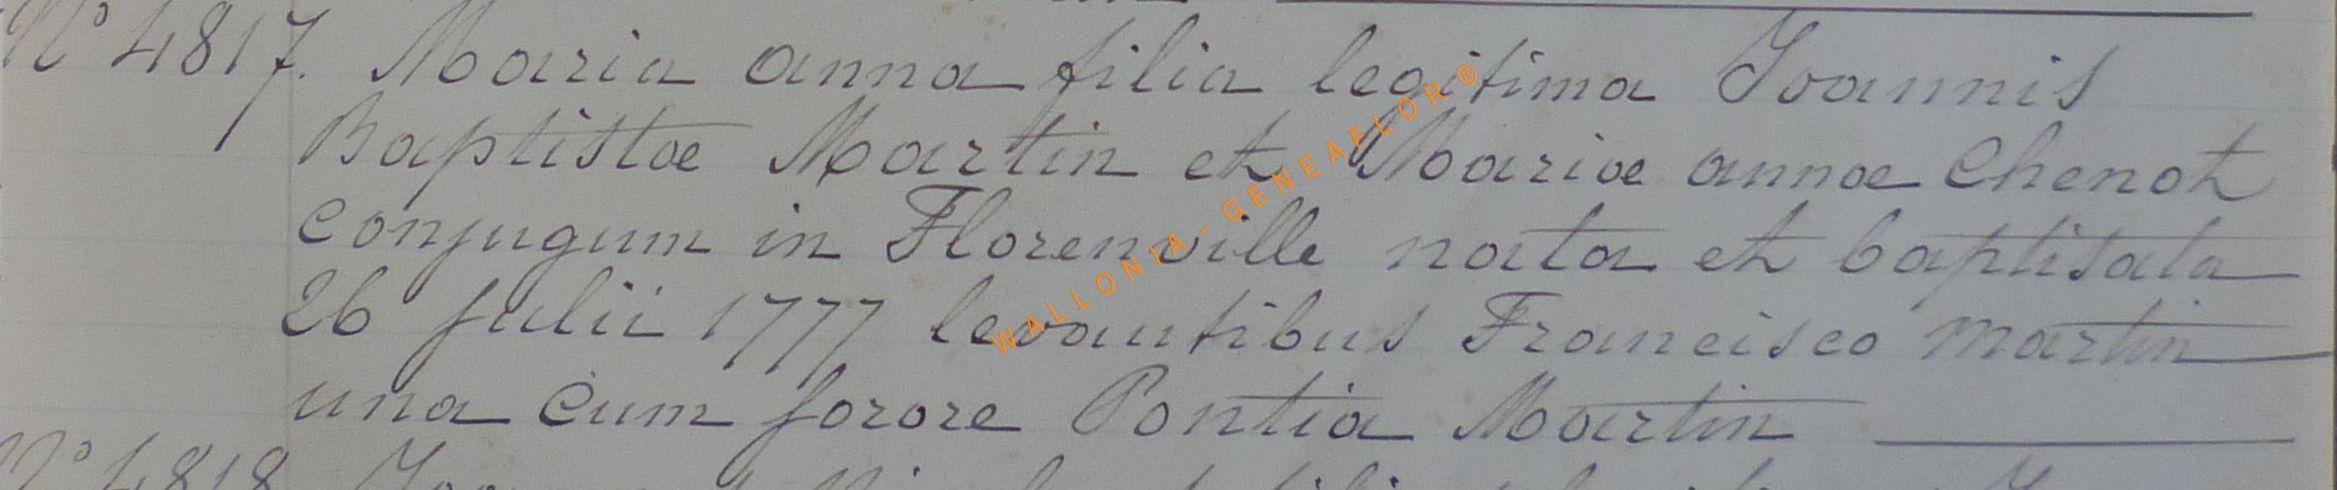 N° 4817. Maria anna filia legitima Joannis
Baptistæ Martin et Mariæ annæ Chenot
Conjugum in Florenville nata et baptisata
26 Julii 1777 levantibus Francisco Martin
una cum sorore Pontia Martin
N° 4818
WALLONIA-GENEAFLOR®